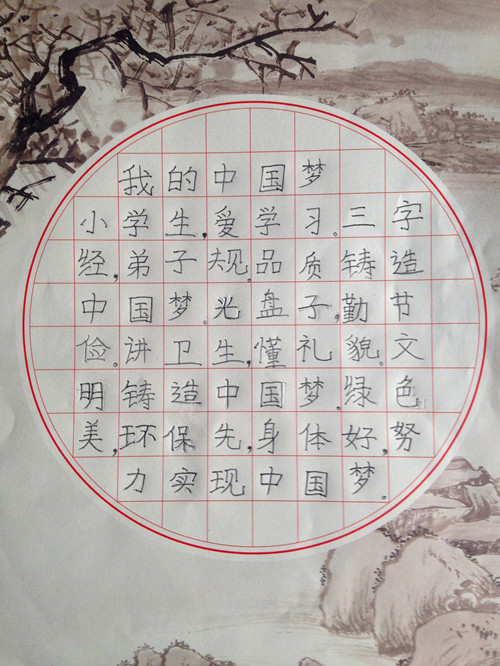 我的中国梦
小学生,爱学习。三字
经,弟子规。品质铸造
中国梦。光盘子,勤节
俭。讲卫生,懂礼貌。文
明铸造中国梦。绿色
美,环保先,身体好,努
力实现中国梦。